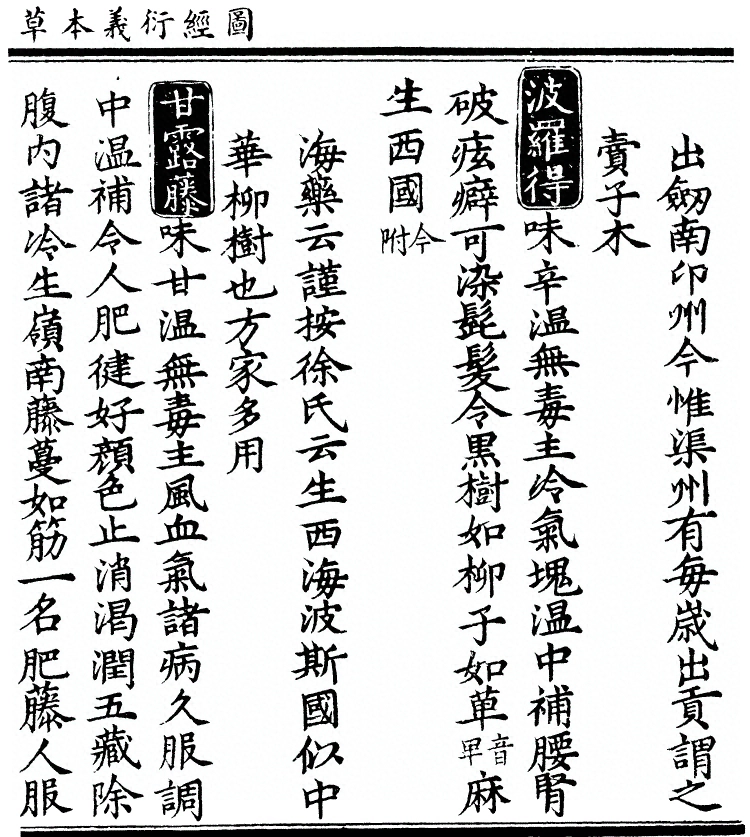 圖經衍義本草
出劒南卬州今惟渠州有每歲出貢謂之
賣子木
波羅得味辛温無毒主冷氣塊温中補腰腎
破痃癖可染髭髮令黑樹如柳子如草音早麻
生西國今附
海藥云謹按徐氏云生西海波斯國似中
華柳樹也方家多用
甘露藤味甘温無毒主風血氣諸病久服調
中温補令人肥健好顏色止消渴潤五藏除
腹內諸冷生嶺南藤蔓如筋一名肥藤人服